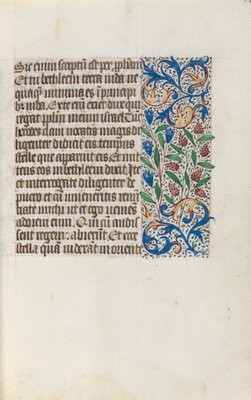 Sic enim scriptũ est per ꝓphetam
Et tu bethleem terra iuda ne
quaq̃ minima es in principi
bus iuda. Ex te enim exiet dux qui
regat pp̃lm meum israel. Tũc
herodes clam vocatis magis di
ligenter didicit ab eis tempus
stelle que apparuit eis. Et mit
tens eos in bethleem dixit. Ite
et interrogate diligenter de
puero et cũ inueneritis renũ
tiate michi ut et ego veniens
adorem eum. Qui cũ audis
sent regem: abierũt. Et ecce
stella quã viderãt in orient